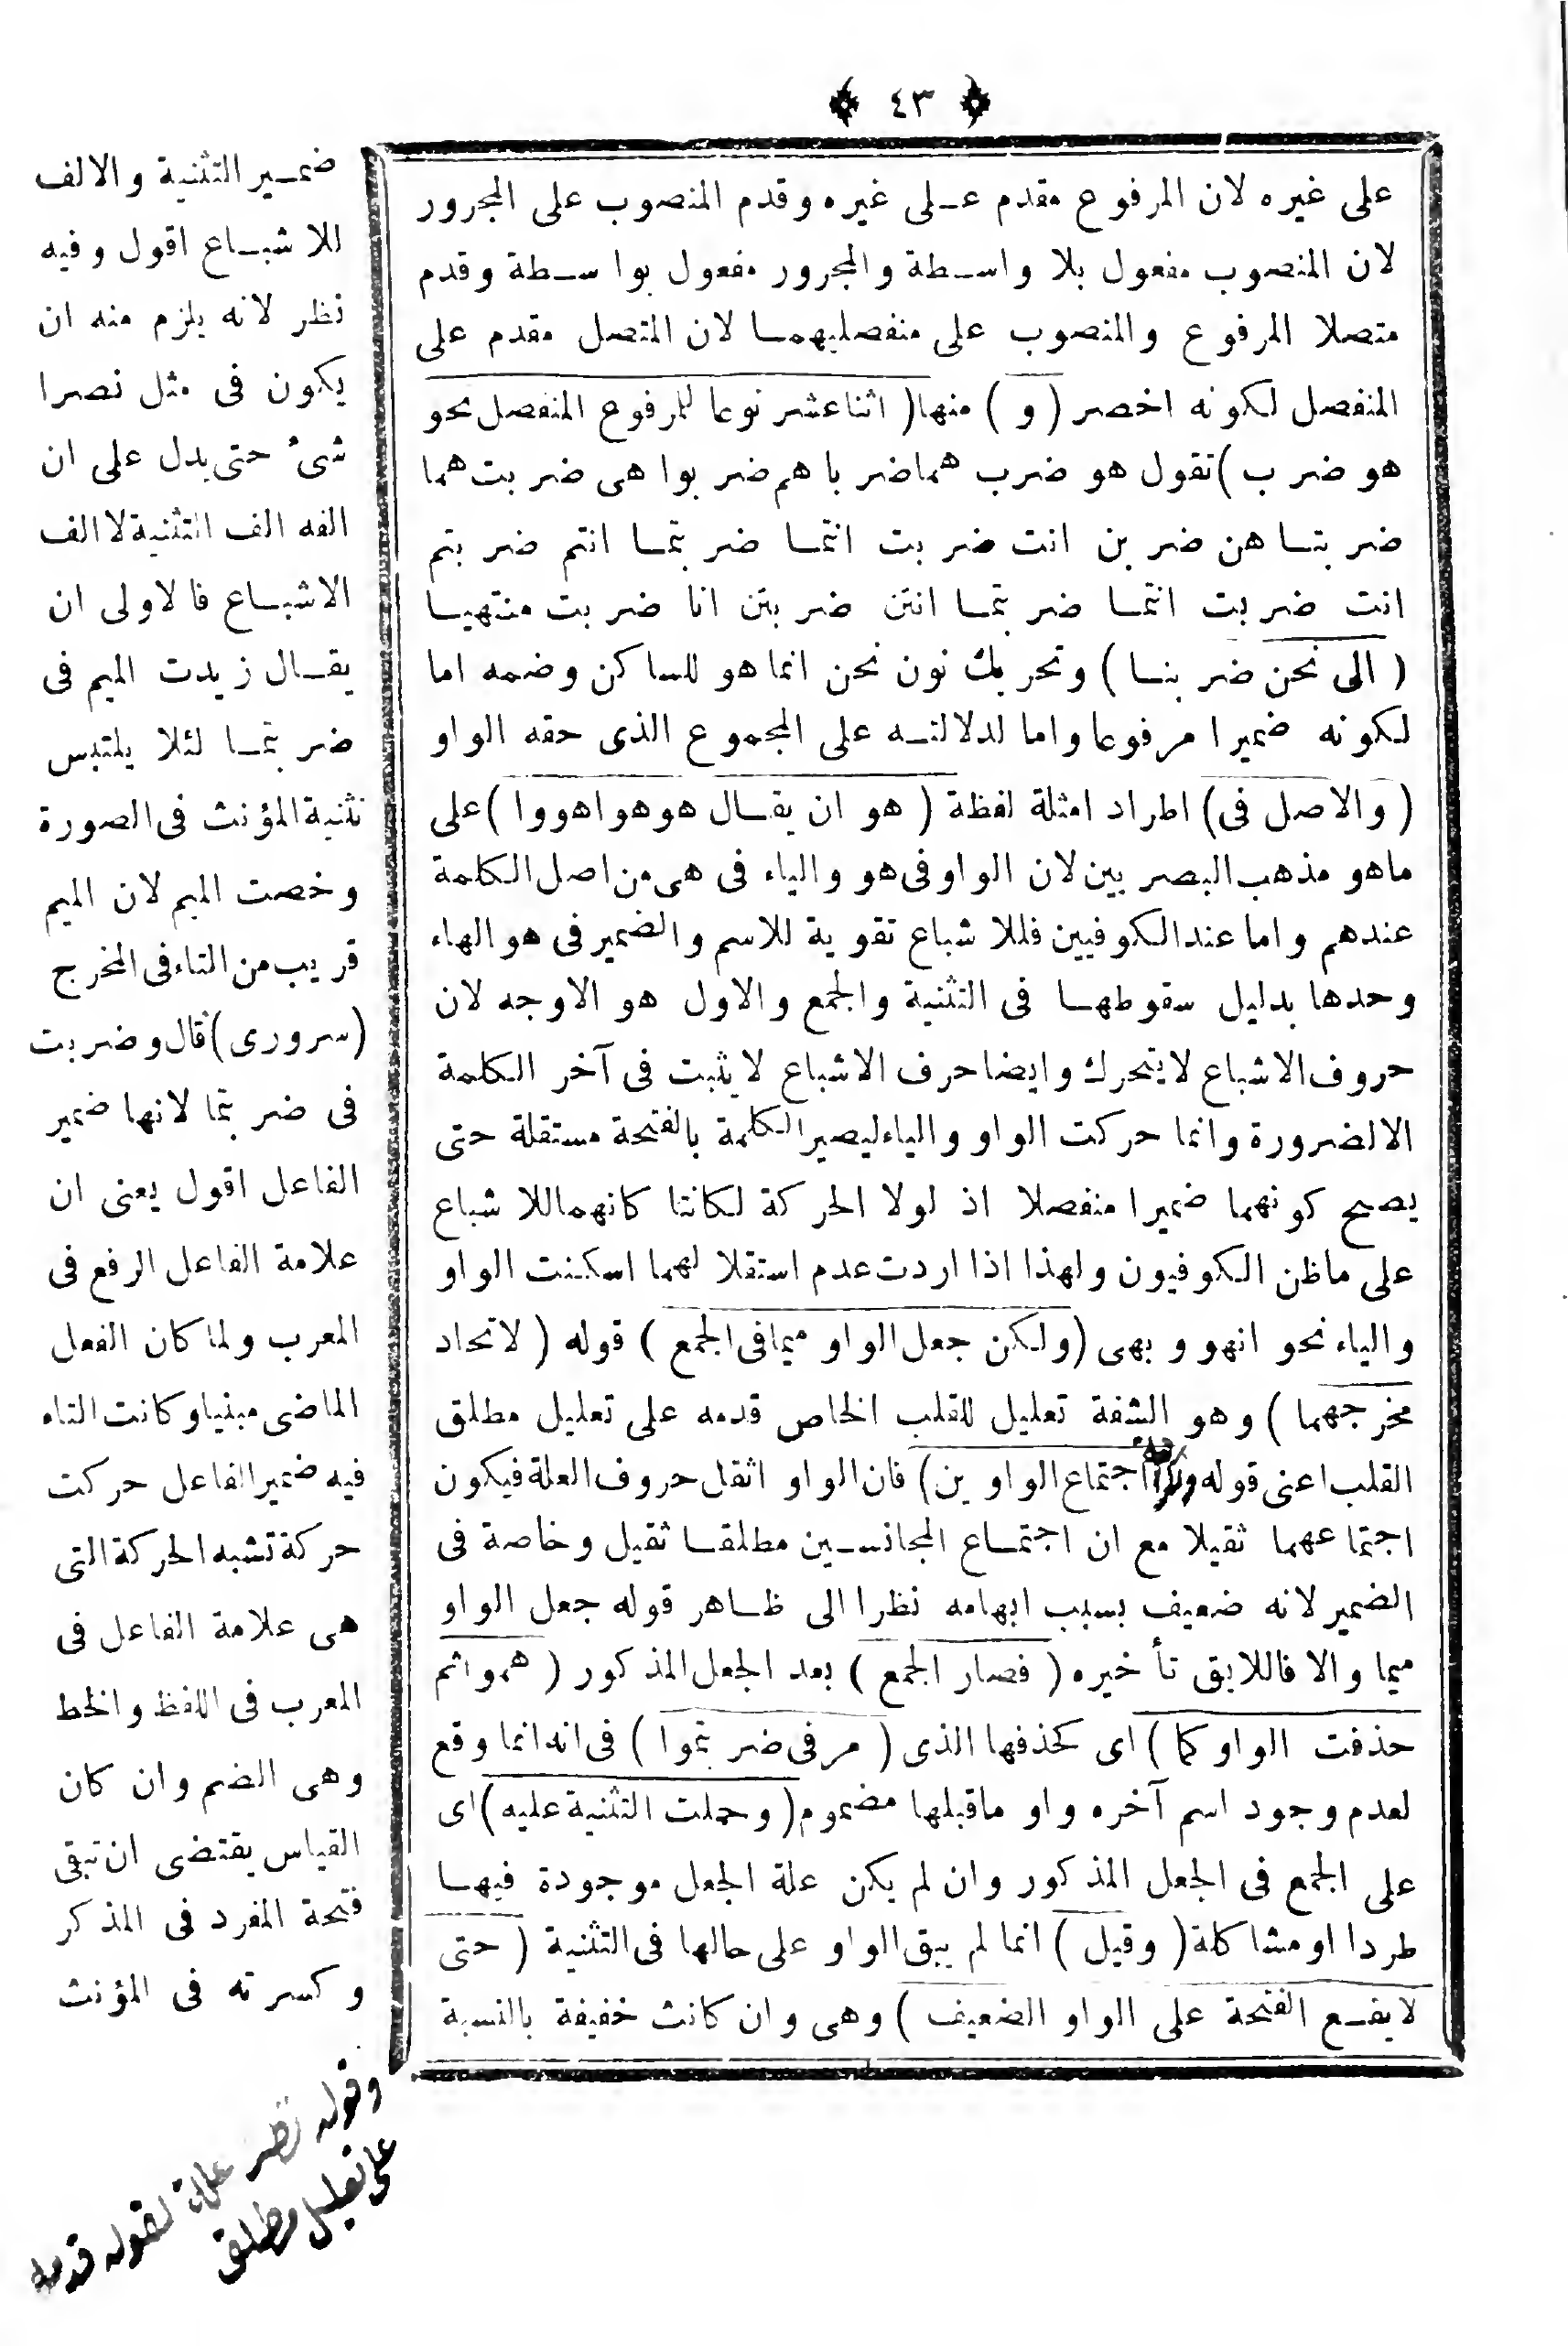 ﴿ ٤٣ ﴾
على غيره لان المرفوع مقدم عـلى غيره وقدم المنصوب على المجرور
لان المنصوب مفعول بلا واسـطة والمجرور مفعول بواسـطة وقدم
متصلا المرفوع والمنصوب على منفصليهمـا لان المتصل مقدم على
المنفصل لكونه اخصر ( و ) منها ( اثنا عشر نوعا للمرفوع المنفصل نحو
هو ضرب ) تقول هو ضرب هما ضربا هم ضربوا هى ضربت هما
ضربتـا هن ضربن انت ضربت انتمـا ضربتمـا انتم ضربتم
انت ضربت انتمـا ضربتمـا انتن ضربتن انا ضربت منتهيـا
( الى نحن ضربنـا ) وتحريك نون نحن انما هو للساكن وضمه اما
لكونه ضميرا مرفوعا واما لدلالتـه على المجموع الذى حقه الواو
( والاصل فى ) اطراد امثلة لفظة ( هو ان يقـال هو هوا هووا ) على
ماهو مذهب البصريين لان الواو فى هو والياء فى هى من اصل الكلمة
عندهم واما عند الكوفيين فللاشباع تقوية للاسم والضمير فى هو الهاء
وحدها بدليل سقوطهـا فى التثنية والجمع والاول هو الاوجه لان
حروف الاشباع لايتحرك وايضا حرف الاشباع لايثبت فى آخر الكلمة
الالضرورة وانما حركت الواو والياء ليصير الكلمة بالفتحة مستقلة حتى
يصح كونهما ضميرا منفصلا اذ لولا الحركة لكانتا كانهما للاشباع
على ماظن الكوفيون ولهذا اذا اردت عدم استقلالهما اسكنت الواو
والياء نحو انهو وبهى ( ولكن جعل الواو ميما فى الجمع ) قوله ( لاتحاد
مخرجهما ) وهو الشفة تعليل للقلب الخاص قدمه على تعليل مطلق
القلب اعنى قوله اجتماع الواوين ) فان الواو اثقل حروف العلة فيكون
اجتماعهما ثقيلا مع ان اجتمـاع المجانسـين مطلقـا ثقيل وخاصة فى
الضمير لانه ضعيف بسبب ابهامه نظرا الى ظـاهر قوله جعل الواو
ميما والا فاللايق تأخيره ( فصار الجمع ) بعد الجعل المذكور ( همو اثم
حذفت الواو كما ) اى كحذفها الذى ( مر فى ضربتموا ) فى انه انما وقع
لعدم وجود اسم آخره واو ماقبلها مضموم ( وحملت التثنية عليه ) اى
على الجمع فى الجعل المذكور وان لم يكن علة الجعل موجودة فيهـا
طردا او مشاكلة ( وقيل ) انما لم يبق الواو على حالها فى التثنية ( حتى
لايقـع الفتحة على الواو الضعيف ) وهى وان كانت خفيفة بالنسبة
ضمـير التثنية والالف
للاشبـاع اقول وفيه
نظر لانه يلزم منه ان
يكون فى مثل نصرا
شئ حتى يدل على ان
الفه الف التثنية لا الف
الاشبـاع فالاولى ان
يقـال زيدت الميم فى
ضربتمـا لئلا يلتبس
تثنية المؤنث فى الصورة
وخصت الميم لان الميم
قريب من التاء فى المخرج
( سرورى ) قال وضربت
فى ضربتما لانها ضمير
الفاعل اقول يعنى ان
علامة الفاعل الرفع فى
المعرب ولما كان الفعل
الماضى مبنيا وكانت التاء
فيه ضمير الفاعل حركت
حركة تشبه الحركة التى
هى علامة الفاعل فى
المعرب فى اللفظ والخط
وهى الضم وان كان
القياس يقتضى ان تبقى
فتحة المفرد فى المذكر
وكسرته فى المؤنث
وقوله نظر علة لقوله قدمه
على تعليل مطلق